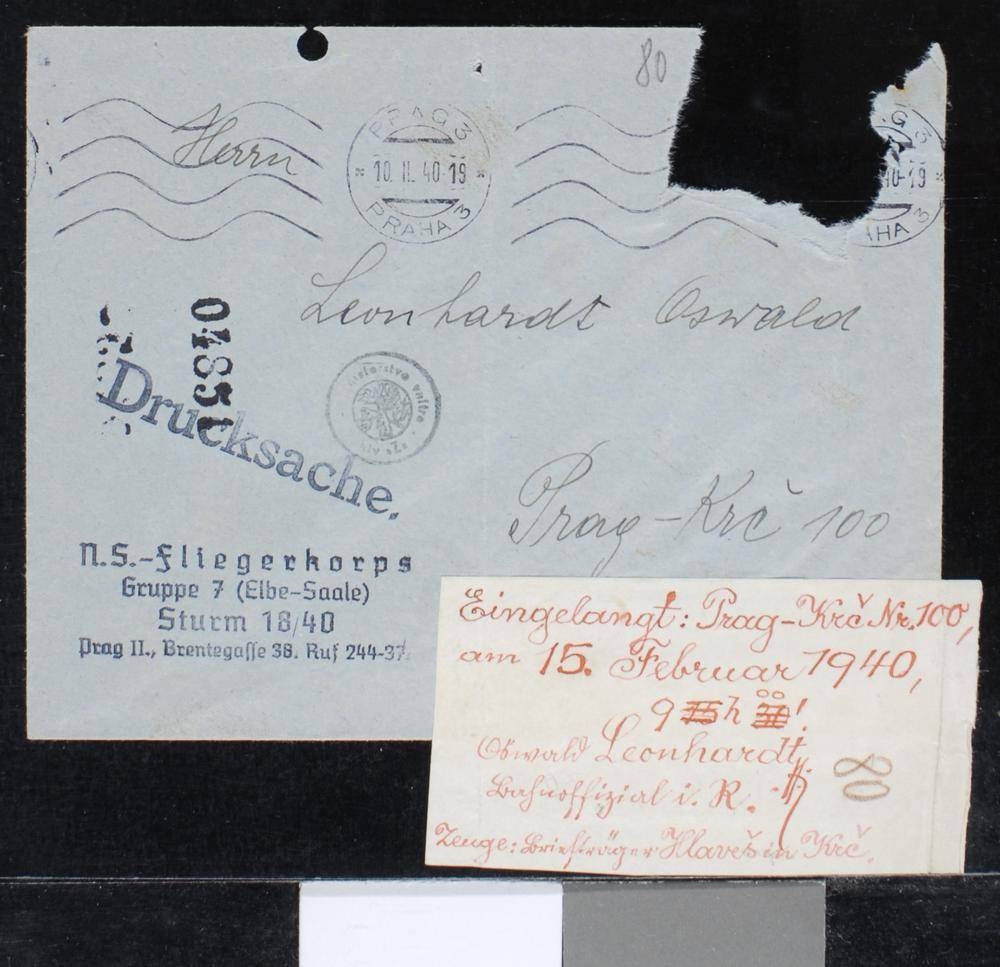 80
Herrn
PRAG 3
10. II. 40-19
PRAHA 3
G 3
40-19
AHA 3
Leonhardt Oswald
04851
Drucksache.
Prag-Krč 100
N.S.-Fliegerkorps
Gruppe 7 (Elbe-Saale)
Sturm 18/40
Prag II., Brentegasse 38. Ruf 244-37.
Eingelangt: Prag-Krč Nr. 100,
am 15. Februar 1940,
9 h 00!
Oswald Leonhardt,
Bahnoffizial i. R.
80
Zeuge: Briefträger in Krč.